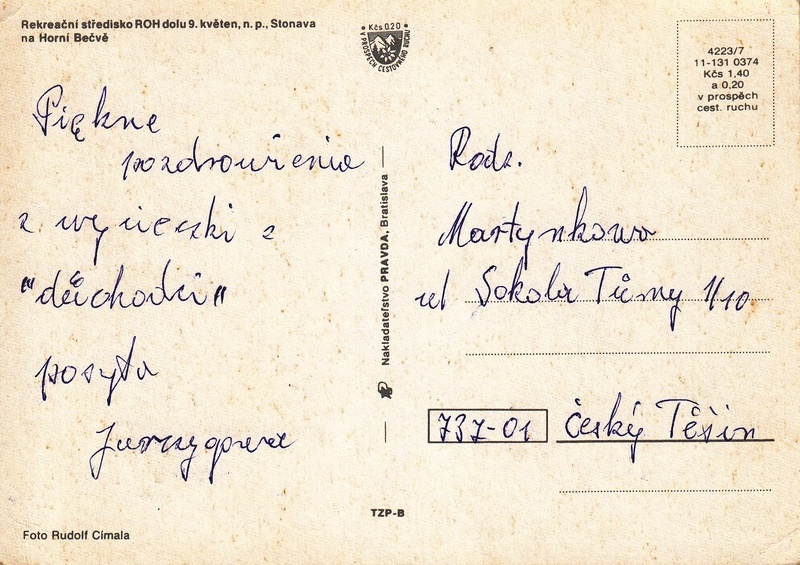 Rekreační středisko ROH dolu 9. květen, n. p., Stonava
na Horní Bečvě
Kčs 0.20
V PROSPĚCH CESTOVNÍHO RUCHU
4223/7
11-131 0374
Kčs 1,40
a 0,20
v prospěch
cest. ruchu
Piękne
pozdrowienia
z wycieczki z
"důchodů"
posyła
Nakladatelstvo PRAVDA, Bratislava
Rodz.
Martynkowa
ul Sokola Tůmy 1/10
737-01 Český Těšín
TZP-B
Foto Rudolf Címala